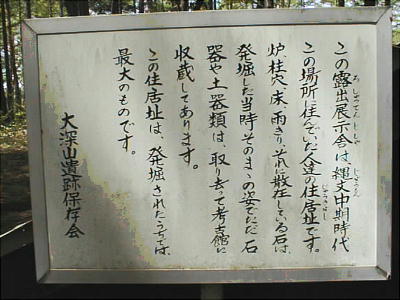 この露出展示舎は、縄文中期時代
この場所に住んでいた人達の住居址です。
炉、柱穴、床、雨きり、それに散在している石は、
発掘した当時そのまゝの姿でただ石
器や土器類は、取り去って考古館に
収蔵してあります。
この住居址は、発掘されたうちでは、
最大のものです。
大深山遺跡保存会